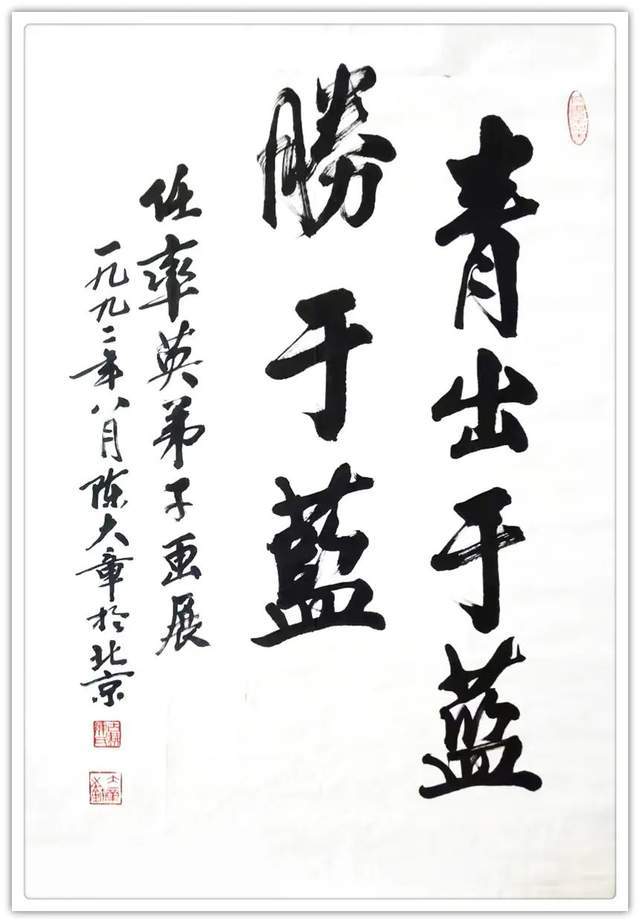 青出于蓝
勝于藍
任率英弟子画展
一九九二年八月陈大章於北京